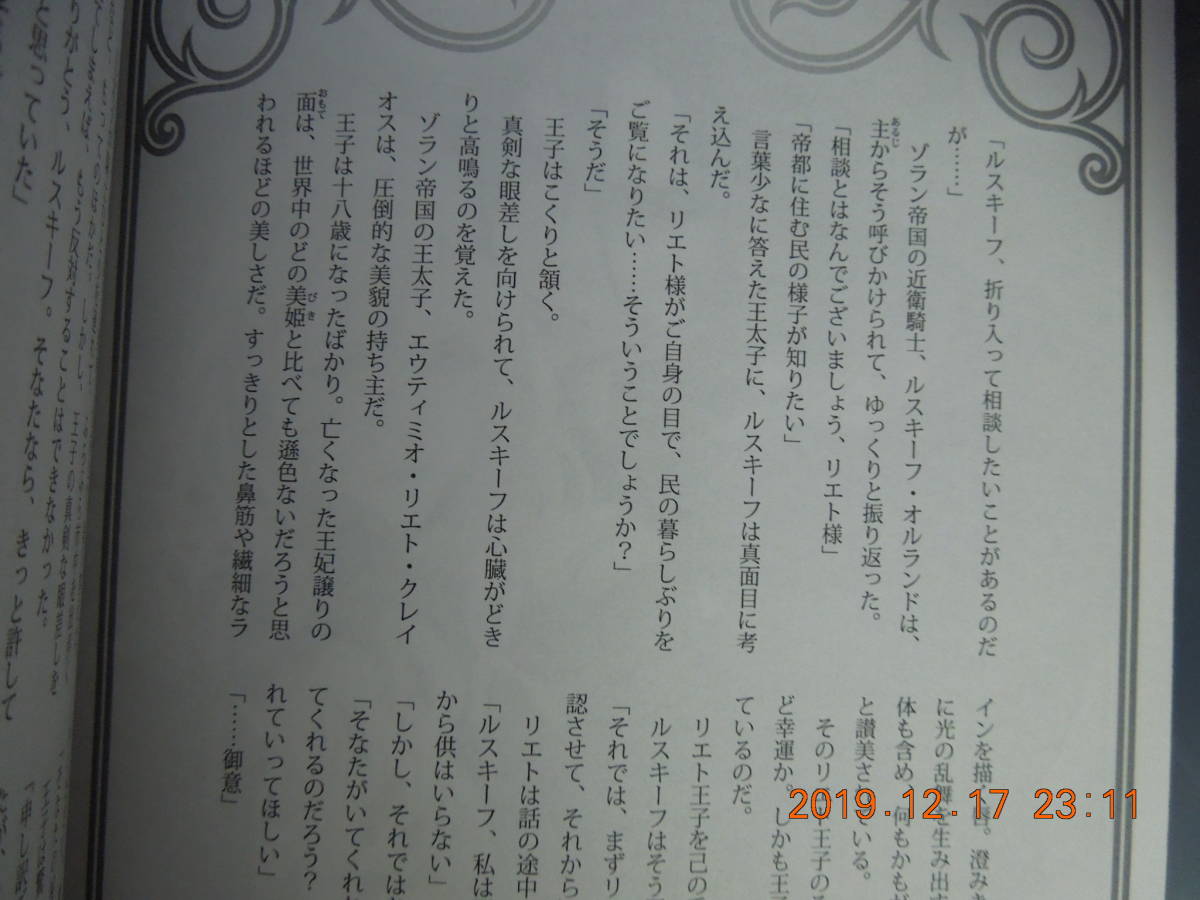 「ルスキーフ、折り入って相談したいことがあるのだ
が……」
ゾラン帝国の近衛騎士、ルスキーフ・オルランドは、
主からそう呼びかけられて、ゆっくりと振り返った。
あるじ
「相談とはなんでございましょう、リエト様」
「帝都に住む民の様子が知りたい」
言葉少なに答えた王太子に、ルスキーフは真面目に考
え込んだ。
「それは、リエト様がご自身の目で、民の暮らしぶりを
ご覧になりたい……そういうことでしょうか?」
「そうだ」
王子はこくりと頷く。
真剣な眼差しを向けられて、ルスキーフは心臓がどき
りと高鳴るのを覚えた。
ゾラン帝国の王太子、エウティミオ・リエト・クレイ
オスは、圧倒的な美貌の持ち主だ。
王子は十八歳になったばかり。亡くなった王妃譲りの
面は、世界中のどの美姫と比べても遜色ないだろうと思
おもて
びき
われるほどの美しさだ。すっきりとした鼻筋や繊細なラ
インを描く唇。澄み
に光の乱舞を生み出す
体も含め、何もかもが
と讃美されている。
そのリエト王子の
ど幸運か。しかも王子
ているのだ。
リエト王子を己の
ルスキーフはそう
「それでは、まずリ
認させて、それから
リエトは話の途中
「ルスキーフ、私は
から供はいらない」
「しかし、それでは
「そなたがいてくれ
てくれるのだろう?
れていってほしい」
「……御意」
もう反対することはできなかった。
りがとう、ルスキーフ。そなたなら、きっと許して
と思っていた」
2019.12.17 23:11